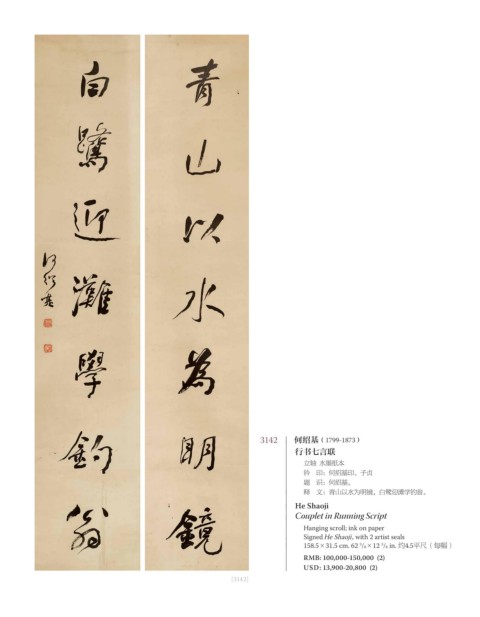 青山以水為明鏡
白鷺迎灘學釣翁
何紹基
3142
何紹基（1799-1873）
行书七言联
立轴 水墨纸本
钤 印：何绍基印、子贞
題 识：何绍基。
释 文：青山以水为明镜，白鹭迎滩学钓翁。
He Shaoji
Couplet in Running Script
Hanging scroll; ink on paper
Signed He Shaoji, with 2 artist seals
158.5 × 31.5 cm. 62 3/8 × 12 3/8 in. 约4.5平尺（每幅）
RMB: 100,000-150,000 (2)
USD: 13,900-20,800 (2)
[3142]